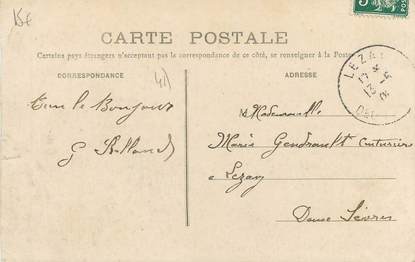 15€
CARTE POSTALE
Certains pays étrangers n'acceptant pas la correspondance de ce côté, se renseigner à la Poste
CORRESPONDANCE
ADRESSE
LEZAY
le Bonjour
Mademoiselle
Maria Gendrault Couturier
a Lezay
Deux Sèvres